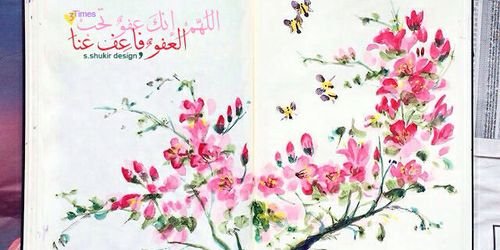 Times
اللهم إنك عفو تحب
العفو فاعف عنا
s.shukir design